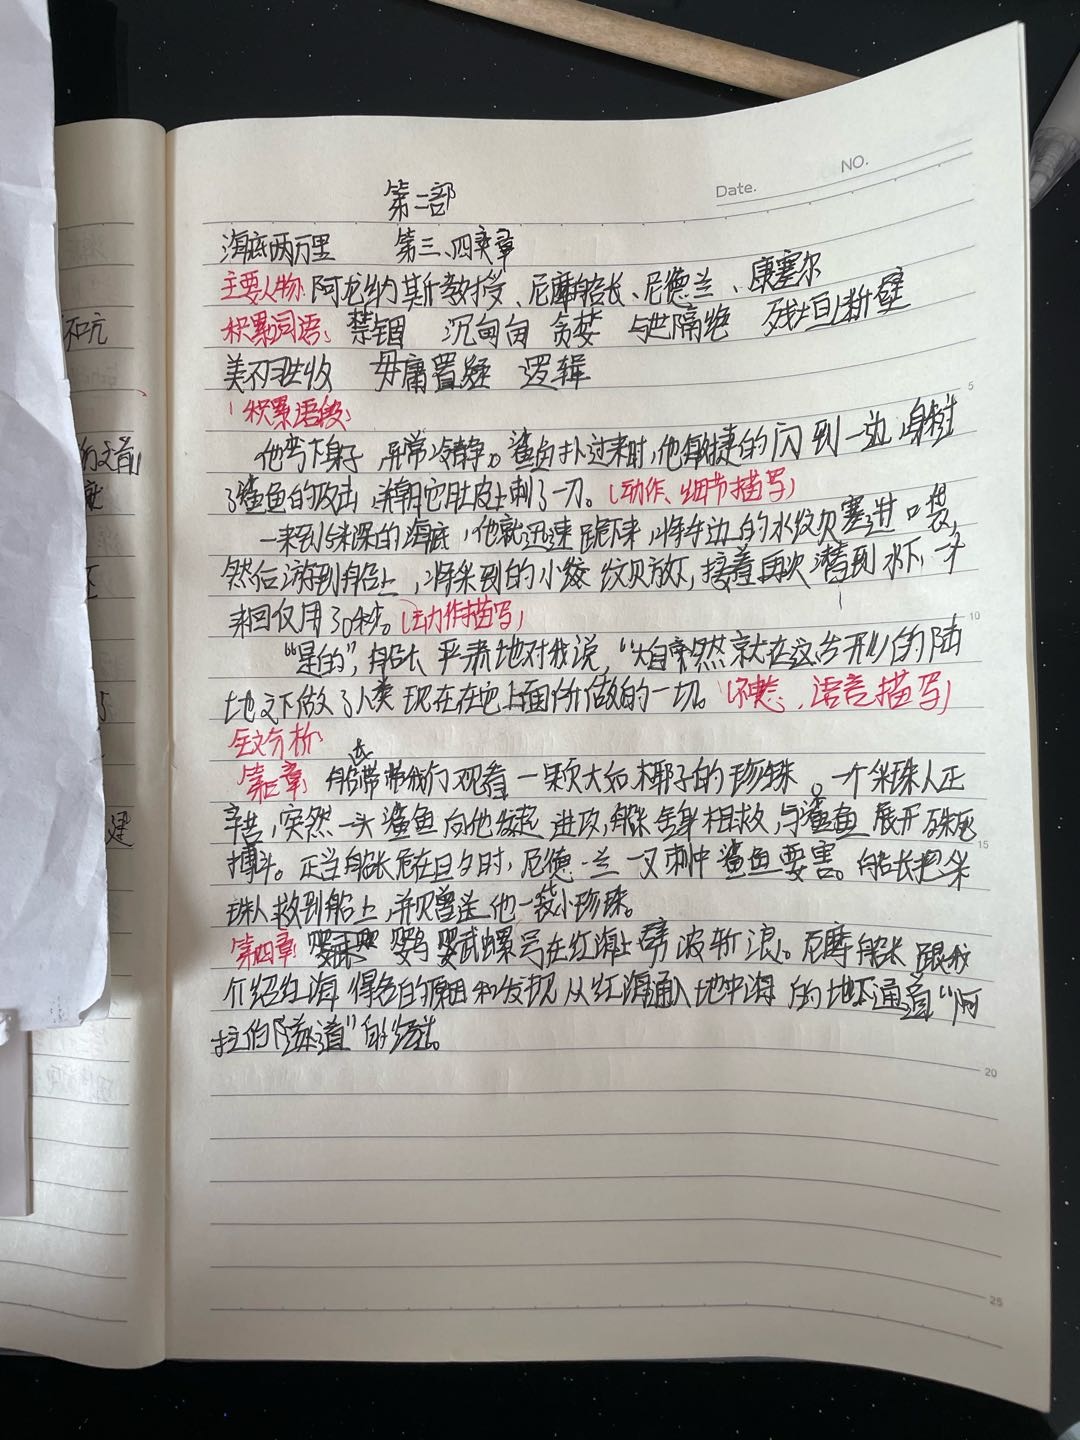 NO.
Date.
第二部
海底两万里 第三、四章
主要人物: 阿龙纳斯教授、尼摩船长、尼德兰、康塞尔
积累词语: 禁锢 沉甸甸 贪婪 与世隔绝 残垣断壁
美不胜收 毋庸置疑 逻辑
积累语段:
他弯下身子,异常冷静。鲨鱼扑过来时,他敏捷的闪到一边,躲过
了鲨鱼的攻击,并朝它肚皮上刺了一刀。(动作、细节描写)
一来到5米深的海底,他就迅速跪下来,将手边的水纹贝塞进口袋,
然后游到船上,将采到的小纹贝放下,接着再次潜到水下,一个
来回仅用30秒。(动作描写)
“是的”,船长严肃地对我说,“大自然就在这台开业的陆
地之下做了人类现在在它上面所做的一切。(神态、语言描写)
全文分析:
第三章: 船长带我们观看一颗大如椰子的珍珠。一个采珠人正
辛苦,突然一头鲨鱼向他发起进攻,船长舍身相救,与鲨鱼展开殊死
搏斗。正当船长危在旦夕时,尼德·兰一叉刺中鲨鱼要害。船长把采
珠人救到船上,并赠送他一袋小珍珠。
第四章: 鹦鹉螺号在红海上劈波斩浪。尼摩船长跟我
介绍红海得名的原因和发现从红海通入地中海的地下通道“阿
拉伯隧道”的经过。
5
10
15
20
25